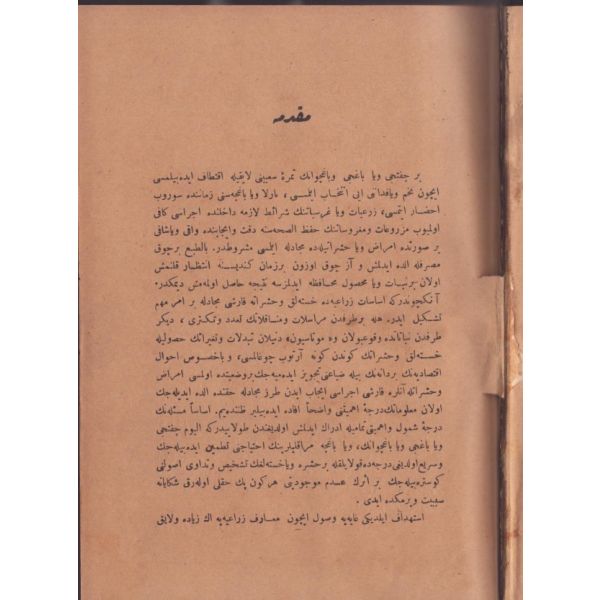 مقدمه
بر چفتجی ویا باغجی ویاباغچوانك ثمرهٔ سعینی لایقیله اقتطاف ایده‌بیلمسی
ایچون تخم ویافدانی ایی انتخاب ایلمسی ، تارلا ویا باغچه‌سنی زماننده سوروب
احضار ایتمسی ، زرعیات ویا غرسیاتنك شرائط لازمه داخلنده اجراسی كافی
اولمیوب مزروعات ومغروساتنك حفظ الصحه‌سنه دقت وایجابنده واقی ویاشافی
بر صورتده امراض ویا حشراتیله‌ده مجادله ایلمسی مشروطدر. بالطبع برچوق
مصرفله الده ایدلمش و آز چوق اوزون برزمان كندیسنه انتظار قلنمش
اولان برنبات ویا محصول محافظه ایدلمزسه نتیجه حاصل اولمه‌مش دیمكدر.
آنكچوندركه اساسات زراعیه‌ده خسته‌لق وحشراته قارشی مجادله بر امر مهم
تشكیل ایدر. هله برطرفدن مراسلات ومناقلاتك تعدد وتمكثری ، دیكر
طرفدن نباتاتده وقوعبولان و« موتاسیون» دنیلان تبدلات وتغیراتك حصولیله
خسته‌لق وحشراتك كوندن كونه آرتوب چوغالمسی ، وباخصوص احوال
اقتصادیه‌نك بردانه‌نك بیله ضیاعنی تجویز ایده‌میه‌جك بروضعیتده اولمسی امراض
وحشراته آنلره قارشی اجراسی ایجاب ایدن طرز مجادله حقنده الده ایدیله‌جك
اولان معلوماتك درجهٔ اهمیتنی واضحاً افاده ایده‌بیلیر ظننده‌یم. اساساً مسئله‌نك
درجهٔ شمول واهمیتی تمامیله ادراك ایدلمش اولدیغندن طولاییدركه الیوم چفتجی
ویا باغجی ویا باغچوانك ، ویا باغچه مراقلیلرینك احتیاجنی تطمین ایده‌بیله‌جك
وسریع اولدیغی درجه‌ده قولایلقله برحشره ویاخسته‌لغك تشخیص وتداوی اصولنی
كوستره‌بیله‌جك بر اثرك عدم موجودیتی هركون پك حقلی اوله‌رق شكایاته
سببیت ویرمكده ایدی .
استهداف ایلدیكی غایه‌یه وصول ایچون معارف زراعیه‌یه اك زیاده ولایق